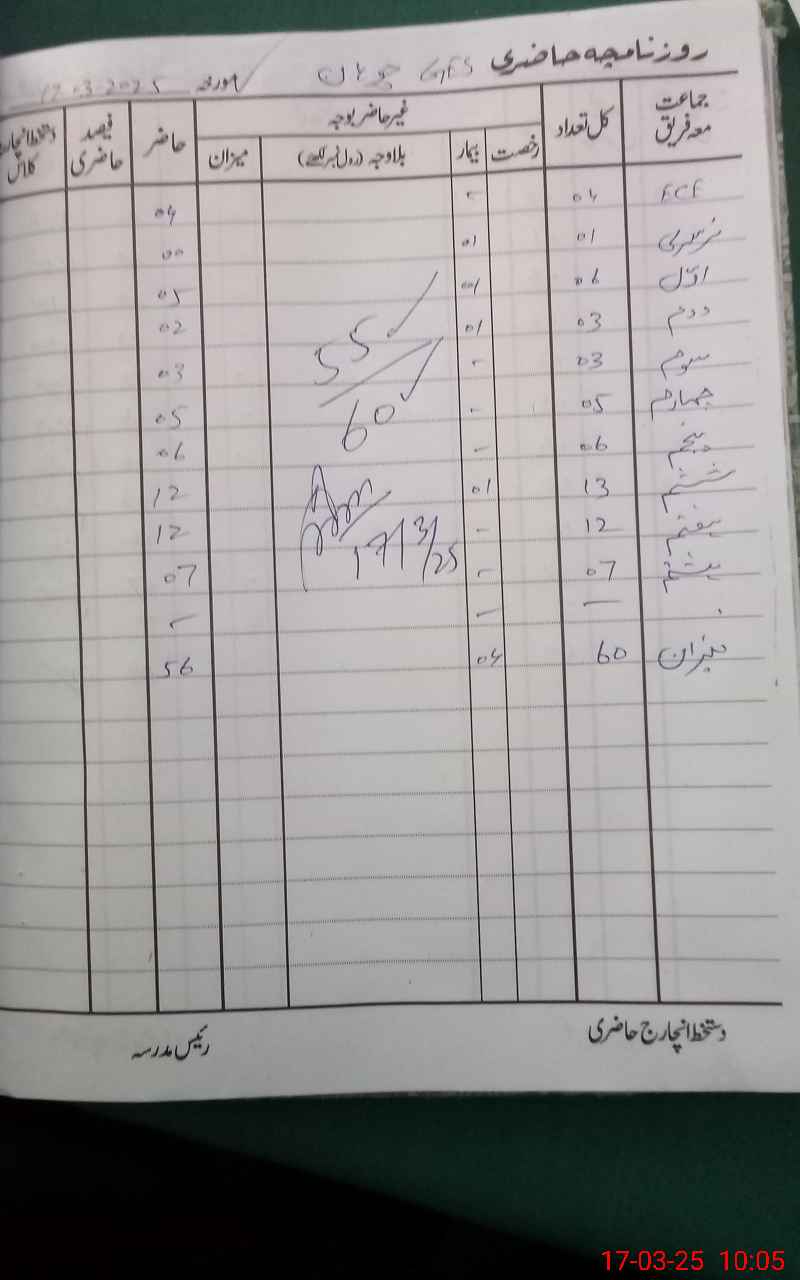 روزنامچہ حاضری GES چوہان مورخہ 17-03-2025
جماعت معہ فریق کل تعداد غیر حاضر بوجہ حاضر فیصد حاضری دستخط انچارج کلاس
رخصت بیمار بلاوجہ (رول نمبر لکھیے) میزان
ECE 04 - 04
نرسری 01 01 00
اوّل 06 01 05
دوم 03 01 02
سوم 03 - 03
چہارم 05 - 05
پنجم 06 - 06
ششم 13 01 12
ہفتم 12 - 12
ہشتم 07 - 07
- - -
میزان 60 04 56
55
60
17/3/25
دستخط انچارج حاضری رئیس مدرسہ
17-03-25 10:05